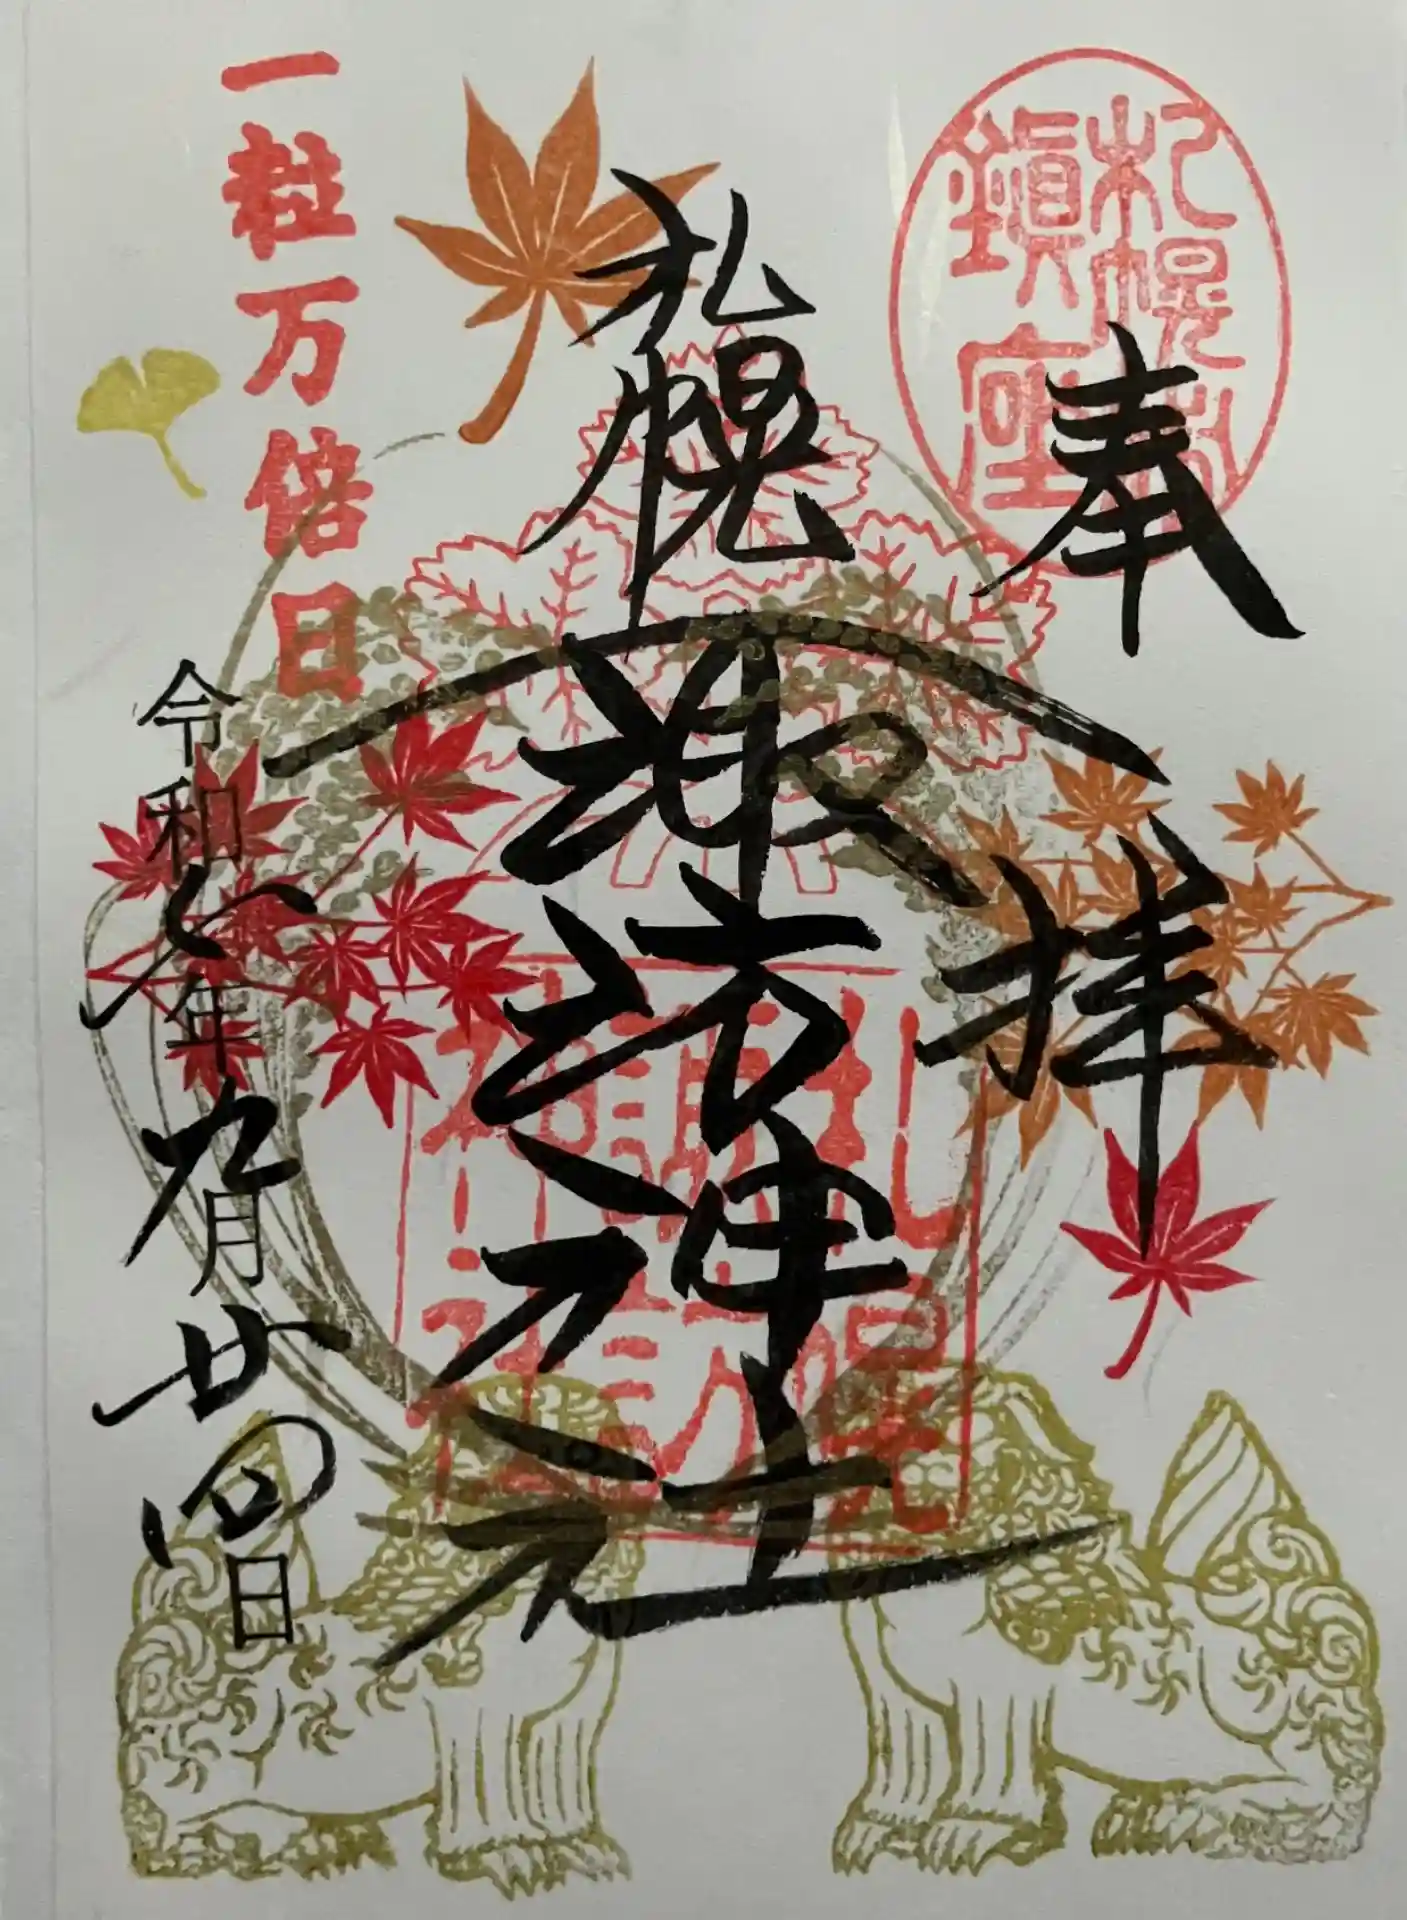 札幌
鎮座
奉拝
札幌
諏訪神社
札幌
諏訪
神社
一粒万倍日
令和七年九月廿四日